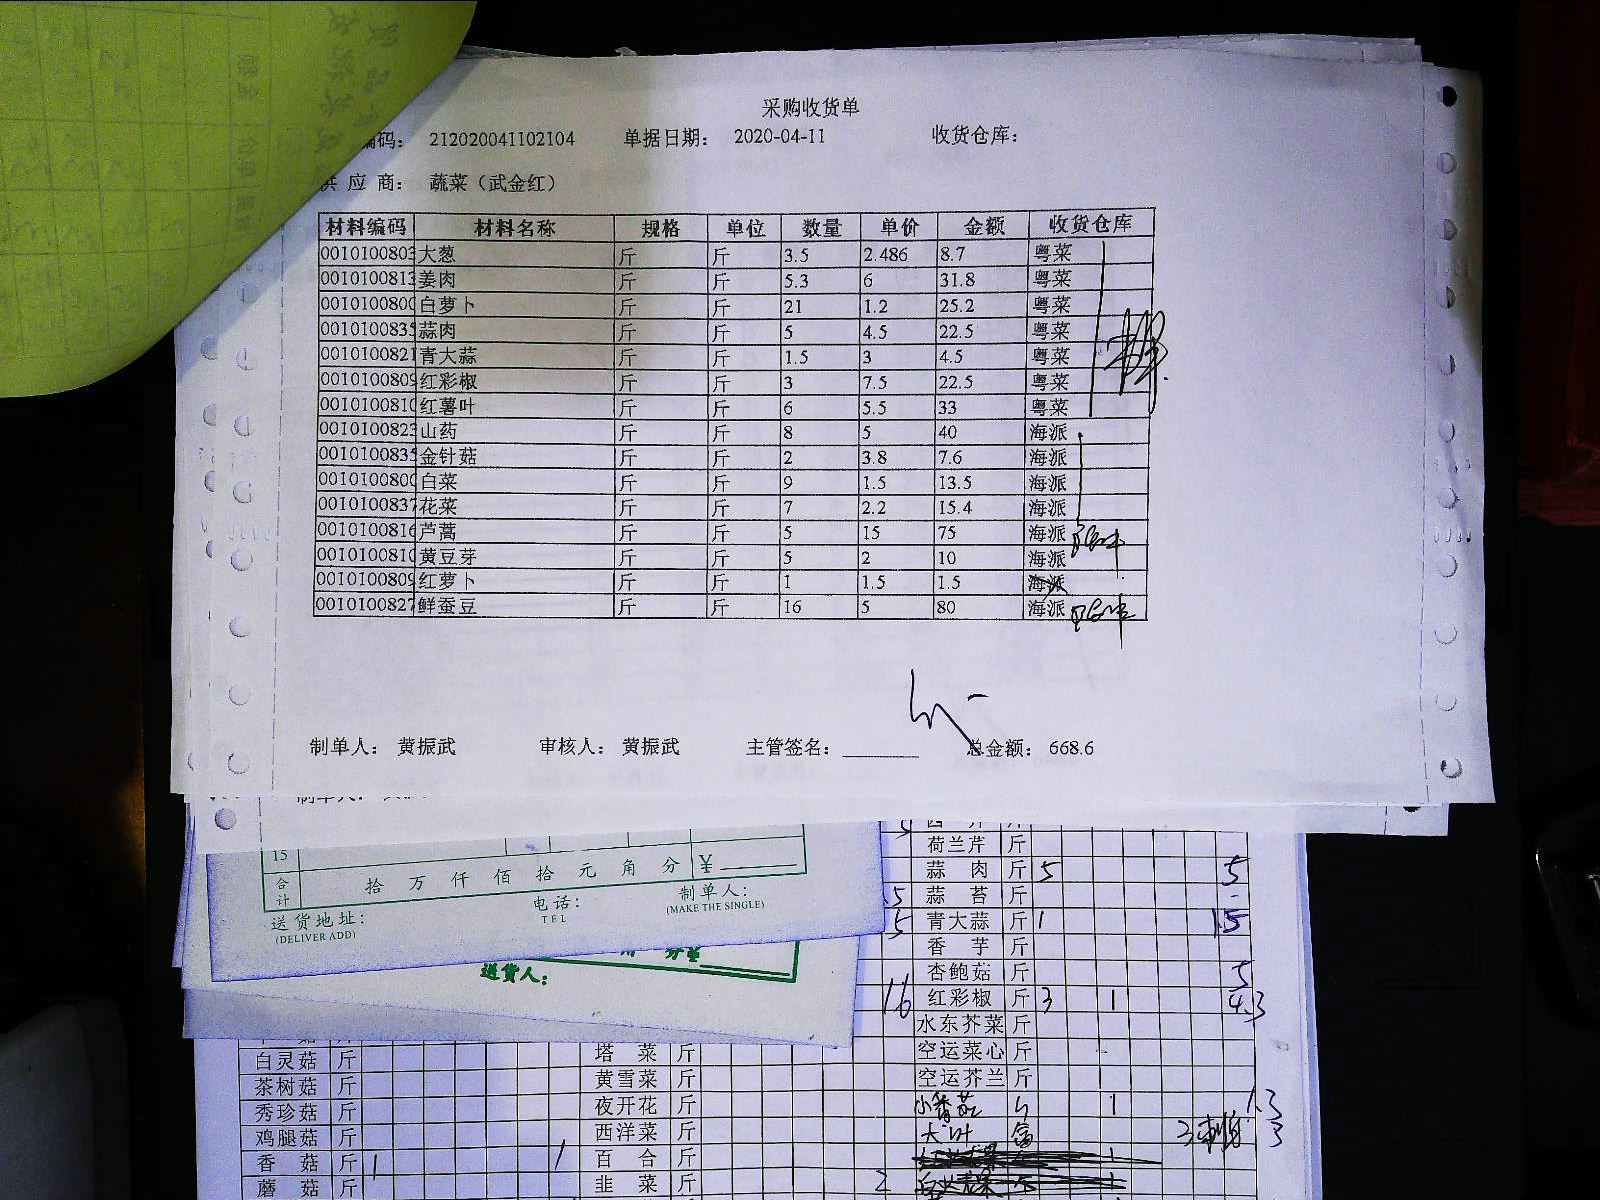 采购收货单
编码： 212020041102104 单据日期： 2020-04-11 收货仓库：
供 应 商： 蔬菜（武金红）
材料编码 材料名称 规格 单位 数量 单价 金额 收货仓库
0010100803 大葱 斤 斤 3.5 2.486 8.7 粤菜
0010100813 姜肉 斤 斤 5.3 6 31.8 粤菜
001010080 白萝卜 斤 斤 21 1.2 25.2 粤菜
0010100835 蒜肉 斤 斤 5 4.5 22.5 粤菜
0010100821 青大蒜 斤 斤 1.5 3 4.5 粤菜
0010100809 红彩椒 斤 斤 3 7.5 22.5 粤菜
001010081 红薯叶 斤 斤 6 5.5 33 粤菜
0010100823 山药 斤 斤 8 5 40 海派
0010100835 金针菇 斤 斤 2 3.8 7.6 海派
001010080 白菜 斤 斤 9 1.5 13.5 海派
0010100837 花菜 斤 斤 7 2.2 15.4 海派
0010100816 芦蒿 斤 斤 5 15 75 海派
001010081 黄豆芽 斤 斤 5 2 10 海派
0010100809 红萝卜 斤 斤 1 1.5 1.5 海派
0010100827 鲜蚕豆 斤 斤 16 5 80 海派
制单人： 黄振武 审核人： 黄振武 主管签名： 总金额： 668.6
制单人：
15
合计 拾 万 仟 佰 拾 元 角 分 ¥
送货地址： 电话： 制单人：
(DELIVER ADD) TEL (MAKE THE SINGLE)
送货人：
荷兰芹 斤
蒜 肉 斤 5 5
蒜 苔 斤
青大蒜 斤 1 1.5
香 芋 斤
杏鲍菇 斤 5
16 红彩椒 斤 3 1 4.3
水东芥菜 斤
白灵菇 斤 塔 菜 斤 空运菜心 斤
茶树菇 斤 黄雪菜 斤 空运芥兰 斤
秀珍菇 斤 夜开花 斤 1 1.3
鸡腿菇 斤 西洋菜 斤 大叶 3 3
香 菇 斤 1 1 百 合 斤
蘑 菇 斤 韭 菜 斤 2